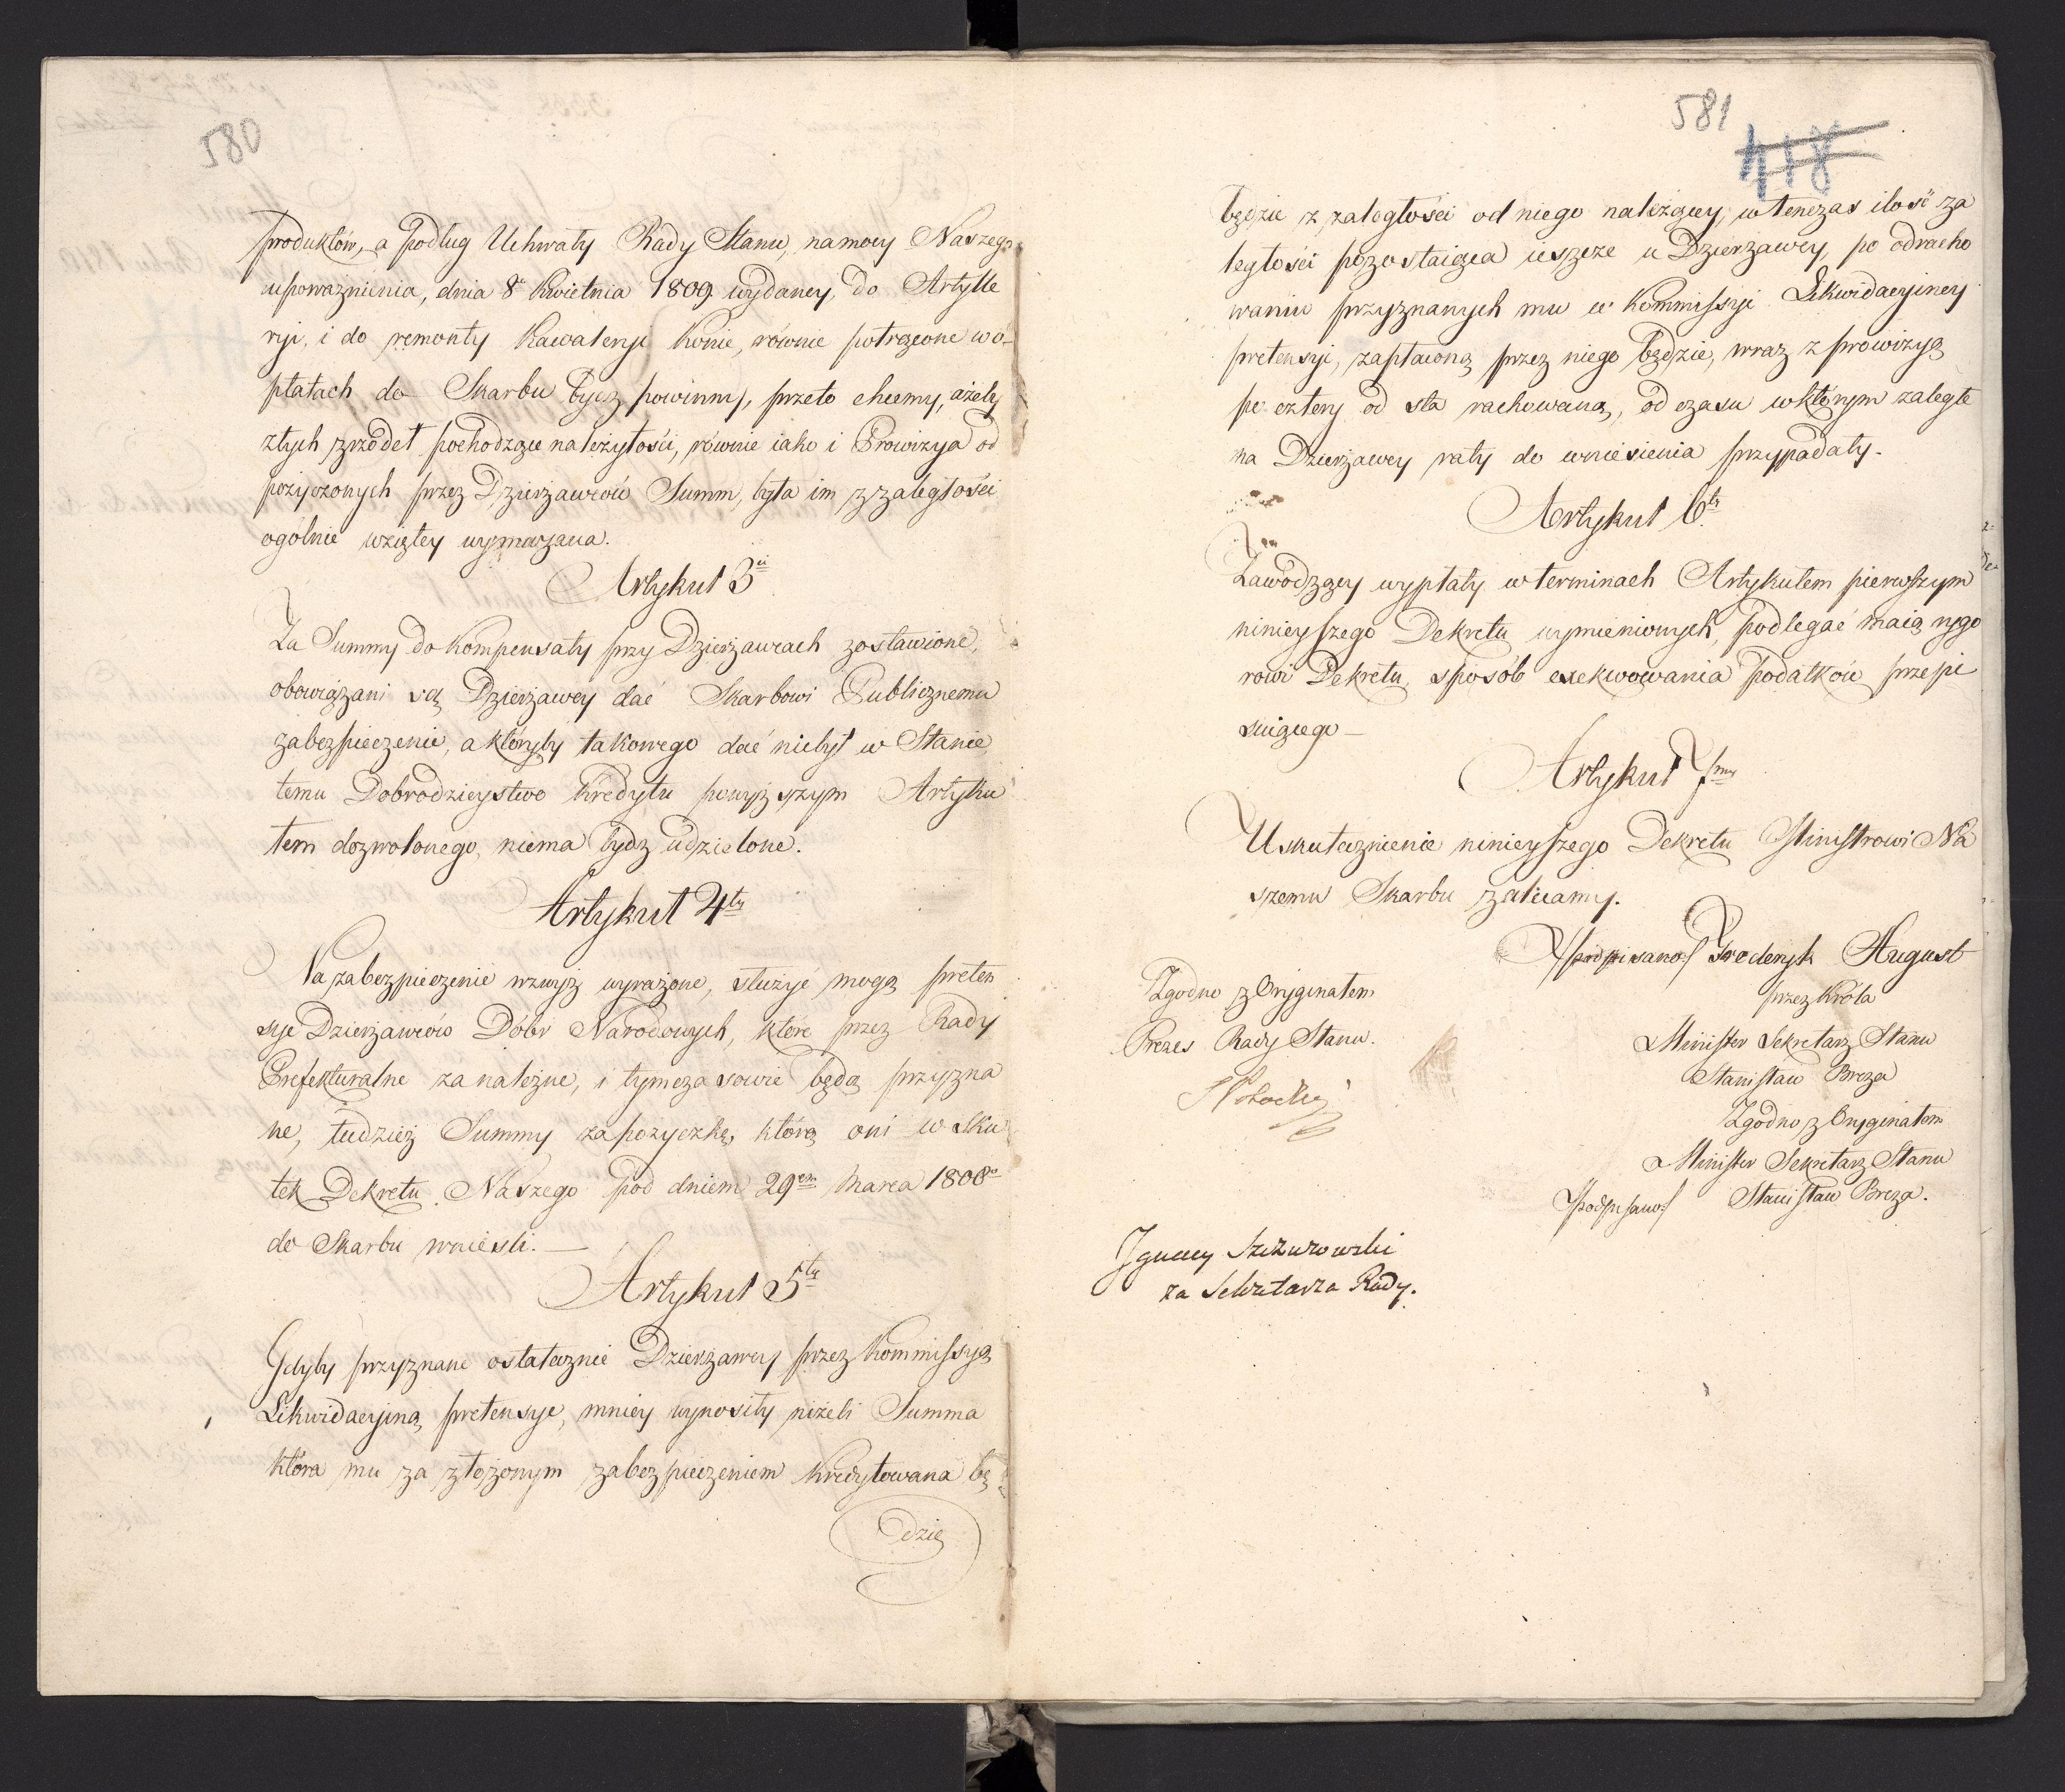 580
produktów, a podług Uchwały Rady Stanu, na mocy Naszego
upoważnienia, dnia 8º Kwietnia 1809. wydaney, do Artylle
ryi, i do remonty Kawaleryi Konie, równie potrącone w o-
płatach do Skarbu bydź powinny, przeto chcemy, ażeby
z tych zrzódeł pochodzące należytości, równie iako i Prowizya od
pożyczonych przez Dzierżawców Summ, była im z zaległości
ogólnie wziętey wymazana.
Artykuł 3ci
Za Summy do Kompensaty przy Dzierżawcach zostawione,
obowiązani są Dzierżawcy dać Skarbowi Publicznemu
zabezpieczenie, a któryby takowego dać niebył w Stanie
temu Dobrodzieystwo Kredytu powyższym Artyku
łem dozwolonego, niema bydz udzielone.
Artykuł 4ty
Na zabezpieczenie wzwyż wyrażone, służyć mogą preten
sye Dzierżawców Dóbr Narodowych, które przez Rady
Prefekturalne za należne, i tymczasowie będą przyzna
ne, tudzież Summy za pożyczkę, którą oni w sku
tek Dekretu Naszego pod dniem 29em Marca 1808º
do Skarbu wnieśli. —
Artykuł 5ty
Gdyby przyznane ostatecznie Dzierżawcy przez Kommissyą
Likwidacyiną pretensye, mniey wynosiły niżeli Summa
która mu za złożonym zabezpieczeniem kredytowana bę
dzie
581
418
będzie z zaległości od niego należącey, wtenczas ilość za
ległości pozostaiąca ieszcze u Dzierżawcy, po odracho
waniu przyznanych mu w Kommissyi Likwidacyiney
pretensyi, zapłaconą przez niego będzie, wraz z prowizyą
po cztery od sta rachowaną, od czasu w którym zaległe
na Dzierżawcy raty do wniesienia przypadały.
Artykuł 6ty
Zawodzący wypłaty w terminach Artykułem pierwszym
ninieyszego Dekretu wymienionych, podlegać maią rygo
rowi Dekretu, sposób exekwowania podatków przepi
suiącego —
Artykuł 7my
Uskutecznienie ninieyszego Dekretu Ministrowi Na
szemu Skarbu zalecamy.
/podpisano/ Fryderyk August
przez Króla
Minister Sekretarz Stanu
Stanisław Breza
Zgodno z Oryginałem
Minister Sekretarz Stanu
/podpisano/ Stanisław Breza.
Zgodno z Oryginałem
Prezes Rady Stanu.
Potocki
Ignacy Szczurowski
za Sekretarza Rady.